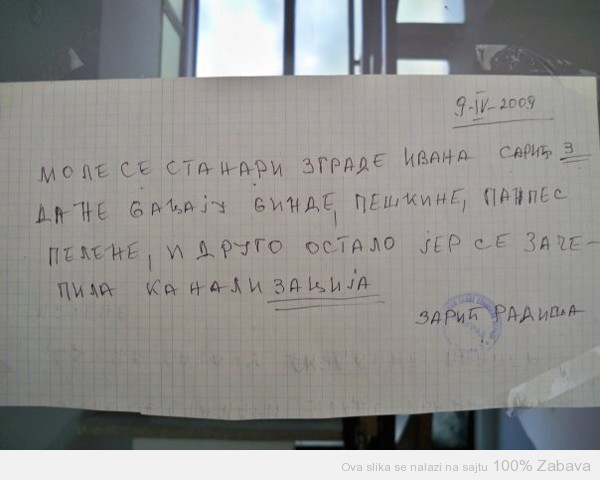 9-IV-2009
МОЛЕ СЕ СТАНАРИ ЗГРАДЕ ИВАНА САРИЋ 3
ДА НЕ БАЦАЈУ ВИНДЕ, ПЕШКИНЕ, ПАНПЕС
ПЕЛЕНЕ, И ДРУГО ОСТАЛО ЈЕР СЕ ЗАЧЕ-
ПИЛА КАНАЛИЗАЦИЈА
ЗАРИЋ РАДИША
Ova slika se nalazi na sajtu 100% Zabava